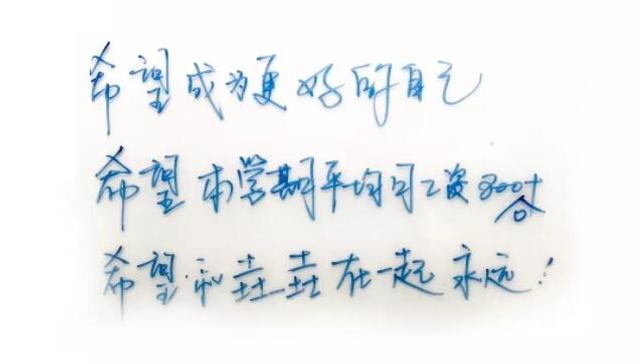 希望成为更好的自己
希望本学期平均月工资8000+
希望和垚垚在一起 永远!